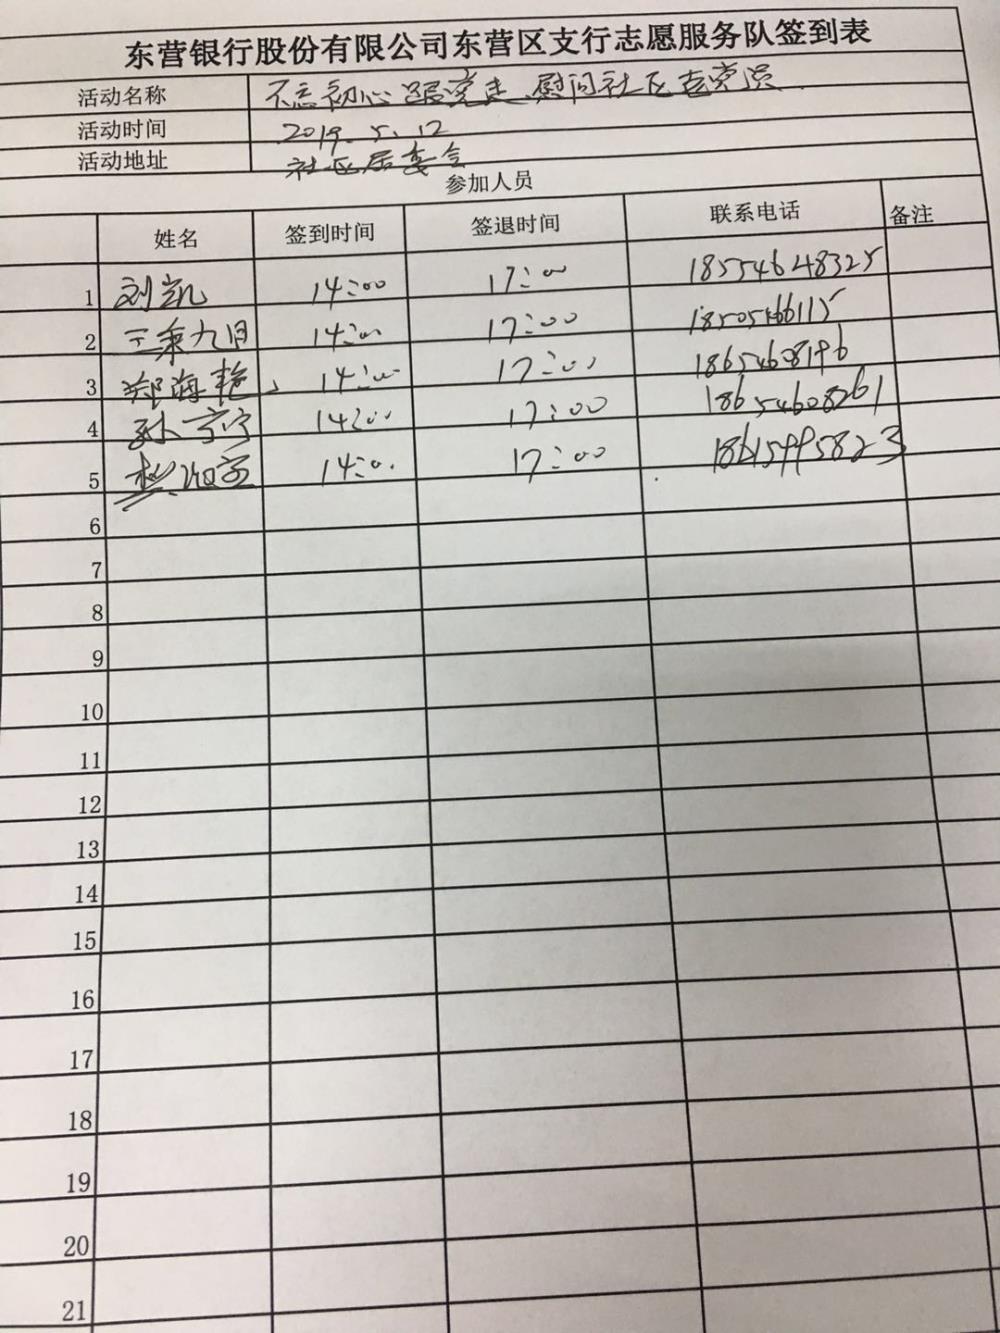 东营银行股份有限公司东营区支行志愿服务队签到表
活动名称 不忘初心跟党走、慰问社区老党员
活动时间 2019.5.12
活动地址 社区居委会
参加人员
姓名 签到时间 签退时间 联系电话 备注
1 刘凯 14:00 17:00 18554648325
2 14:00 17:00 18505466115
3 郑海艳 14:00 17:00 18654608196
4 孙宁宁 14:00 17:00 18654608261
5 14:00 17:00 18615995823
6
7
8
9
10
11
12
13
14
15
16
17
18
19
20
21